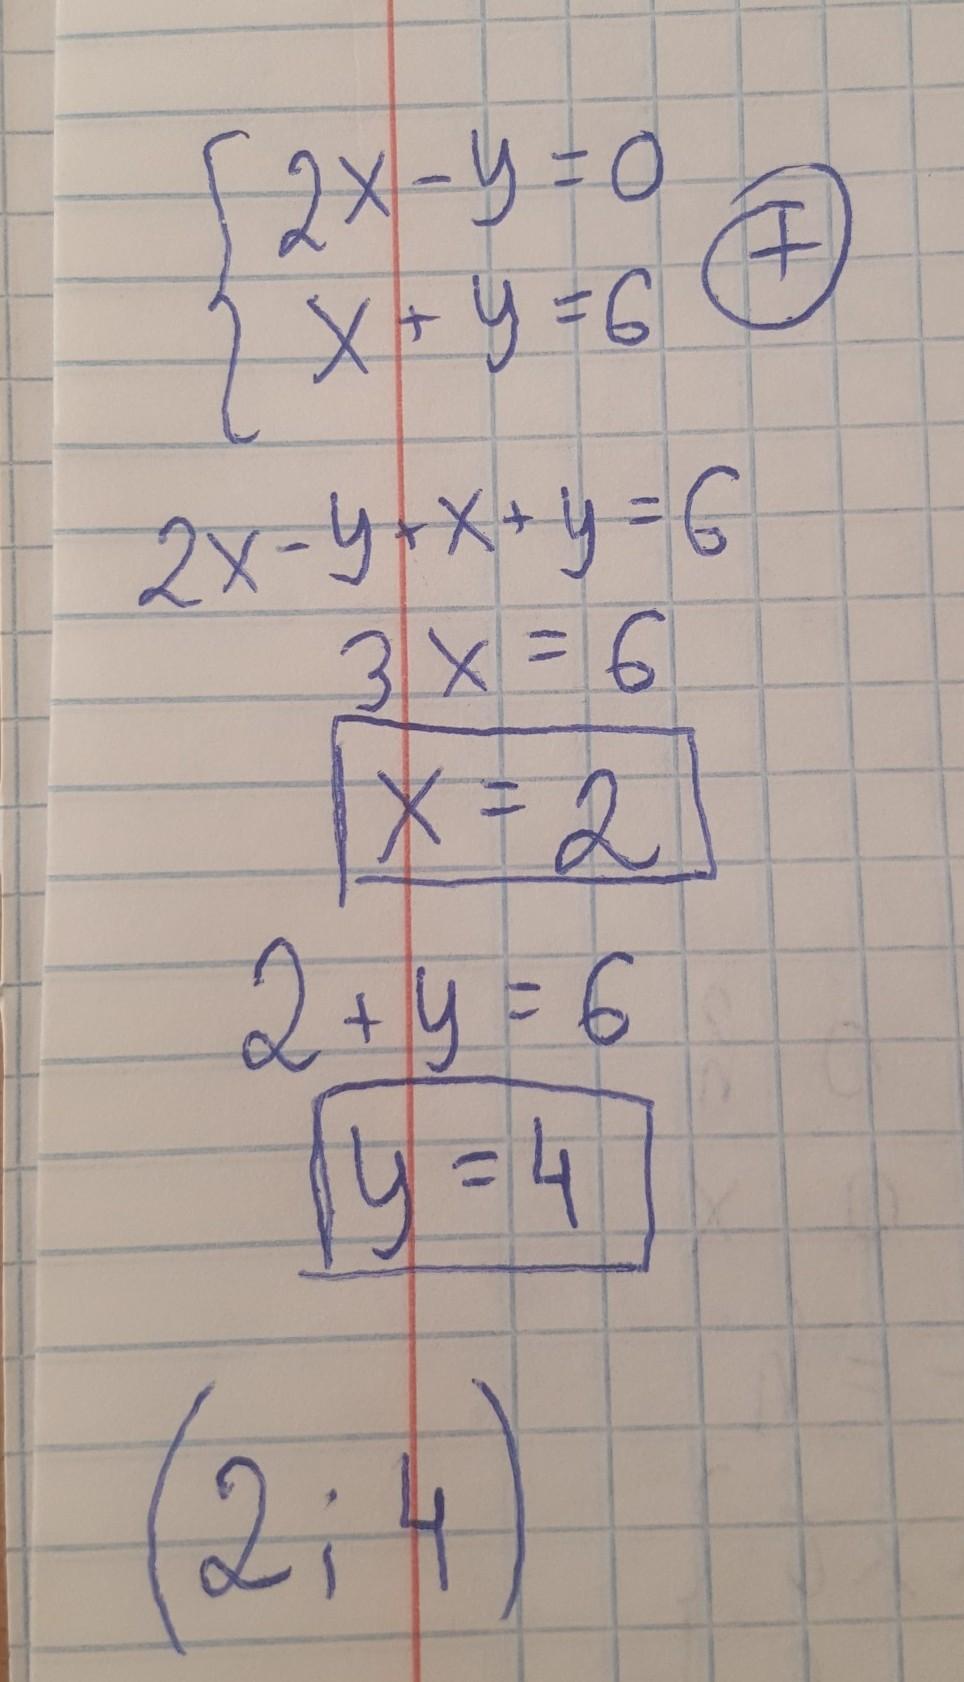 2x - y = 0
x + y = 6
+
2x - y + x + y = 6
3x = 6
x = 2
2 + y = 6
y = 4
(2; 4)